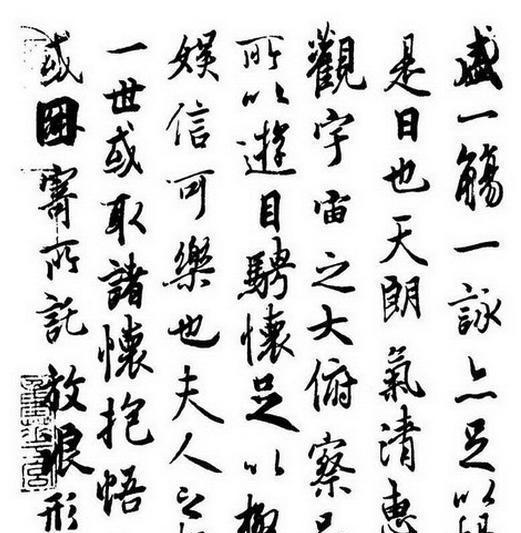 盛一觴一詠亦足以
是日也天朗氣清惠
觀宇宙之大俯察品
所以遊目騁懷足以極
娛信可樂也夫人之
一世或取諸懷抱悟
或因寄所託放浪形